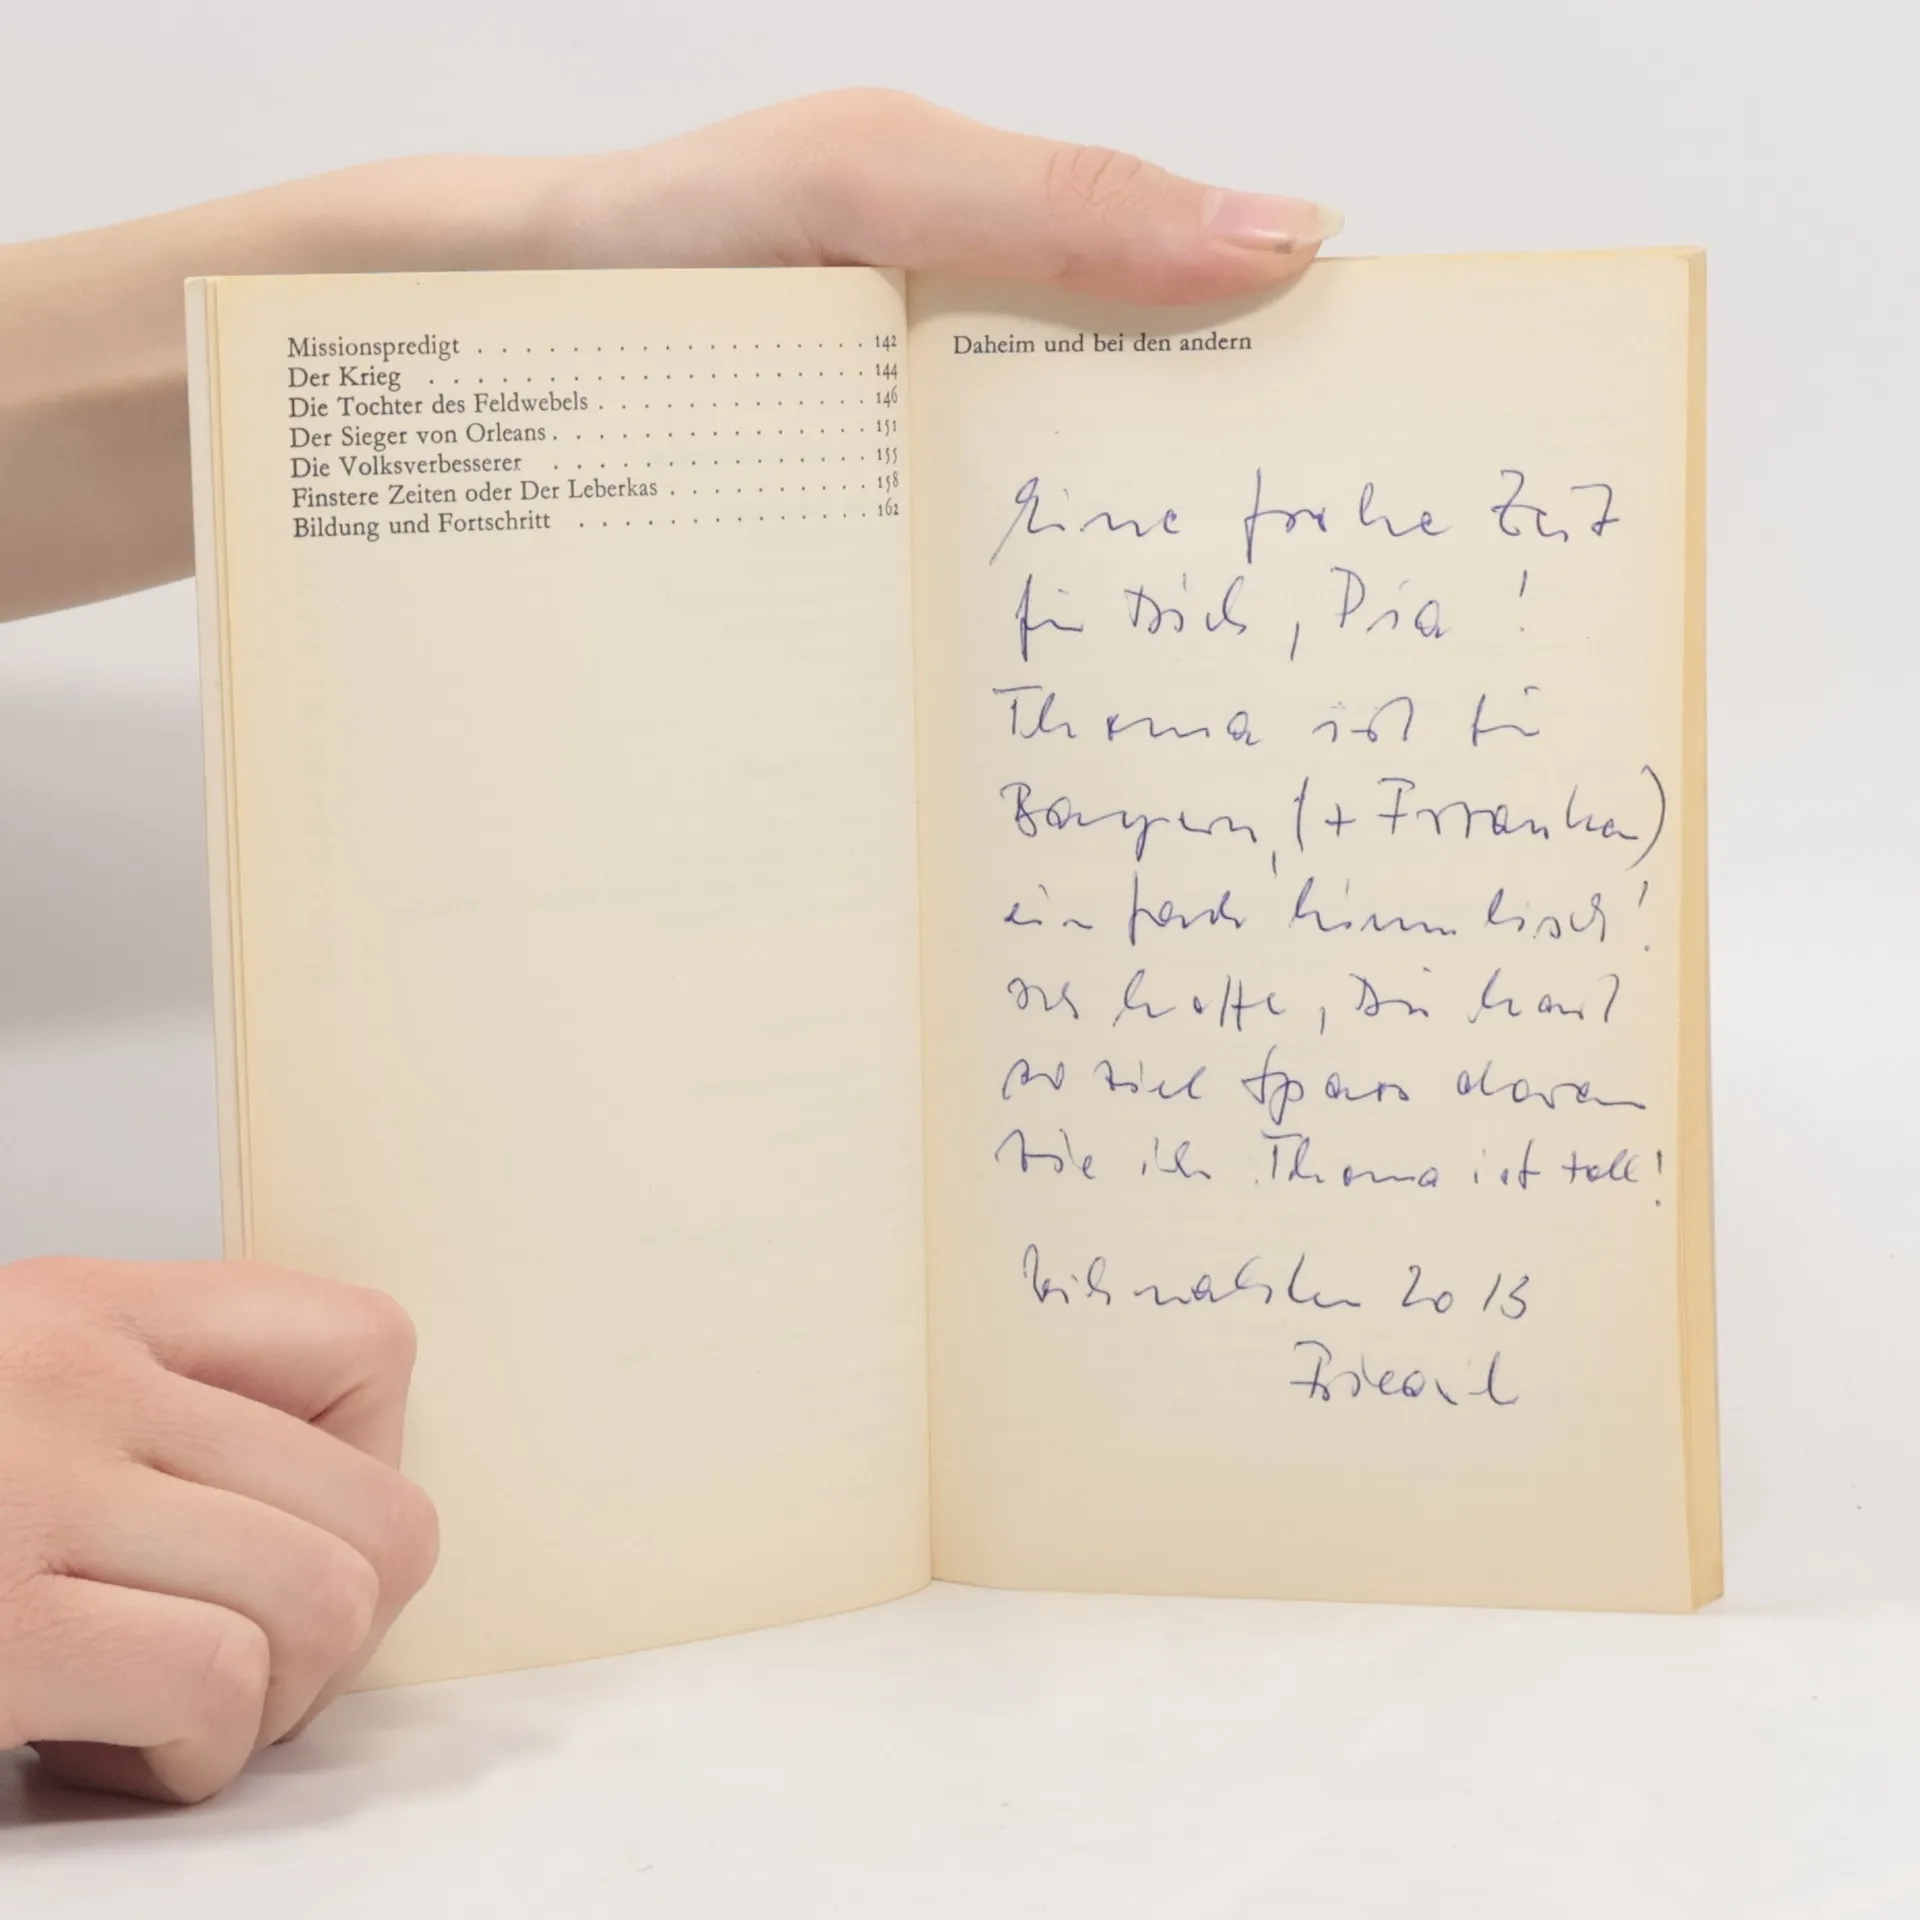 Missionspredigt . . . . . . . . . . . . . . . . . . 142
Der Krieg . . . . . . . . . . . . . . . . . . . . 144
Die Tochter des Feldwebels . . . . . . . . . . . . 146
Der Sieger von Orleans . . . . . . . . . . . . . . 151
Die Volksverbesserer . . . . . . . . . . . . . . . 155
Finstere Zeiten oder Der Leberkas . . . . . . . . . 158
Bildung und Fortschritt . . . . . . . . . . . . . . 162
Daheim und bei den andern
Eine frohe Zeit
für Dich, Pia!
Thoma ist für
Bayern, (+ Franken)
einfach himmlisch!
Ich hoffe, Du hast
so viel Spass daran
wie ich. Thoma ist toll!
Weihnachten 2013